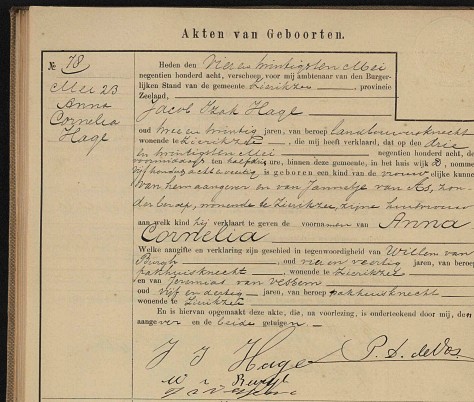 Akten van Geboorten.
№ 78
Mei 23
Anna
Cornelia
Hage
Heden den Vier en twintigsten Mei
negentien honderd acht, verscheen voor mij ambtenaar van den Burger-
lijken Stand van de gemeente Zierikzee, provincie
Zeeland,
Jacob Izak Hage
oud twee en twintig jaren, van beroep landbouwersknecht
wonende te Zierikzee, die mij heeft verklaard, dat op den drie
en twintigsten Mei negentien honderd acht, de
voormiddags ten half ure, binnen deze gemeente, in het huis wijk D, nomme
vijfhonderd acht en veertig is geboren een kind van de vrouwelijke kunne
van hem aangever en van Jannetje van As, zon
der beroep, wonende te Zierikzee, zijne huisvrouw
aan welk kind hij verklaart te geven de voornamen van Anna
Cornelia
Welke aangifte en verklaring zijn geschied in tegenwoordigheid van Willem van
Burgh oud vier en veertig jaren, van beroep
pakhuisknecht, wonende te Zierikzee
en van Jeremias van
oud vijf en dertig jaren, van beroep pakhuisknecht
wonende te Zierikzee
En is hiervan opgemaakt deze akte, die, na voorlezing, is onderteekend door mij, den
aangever en de beide getuigen.
J J Hage P. D. de Vos.
W v Burgh